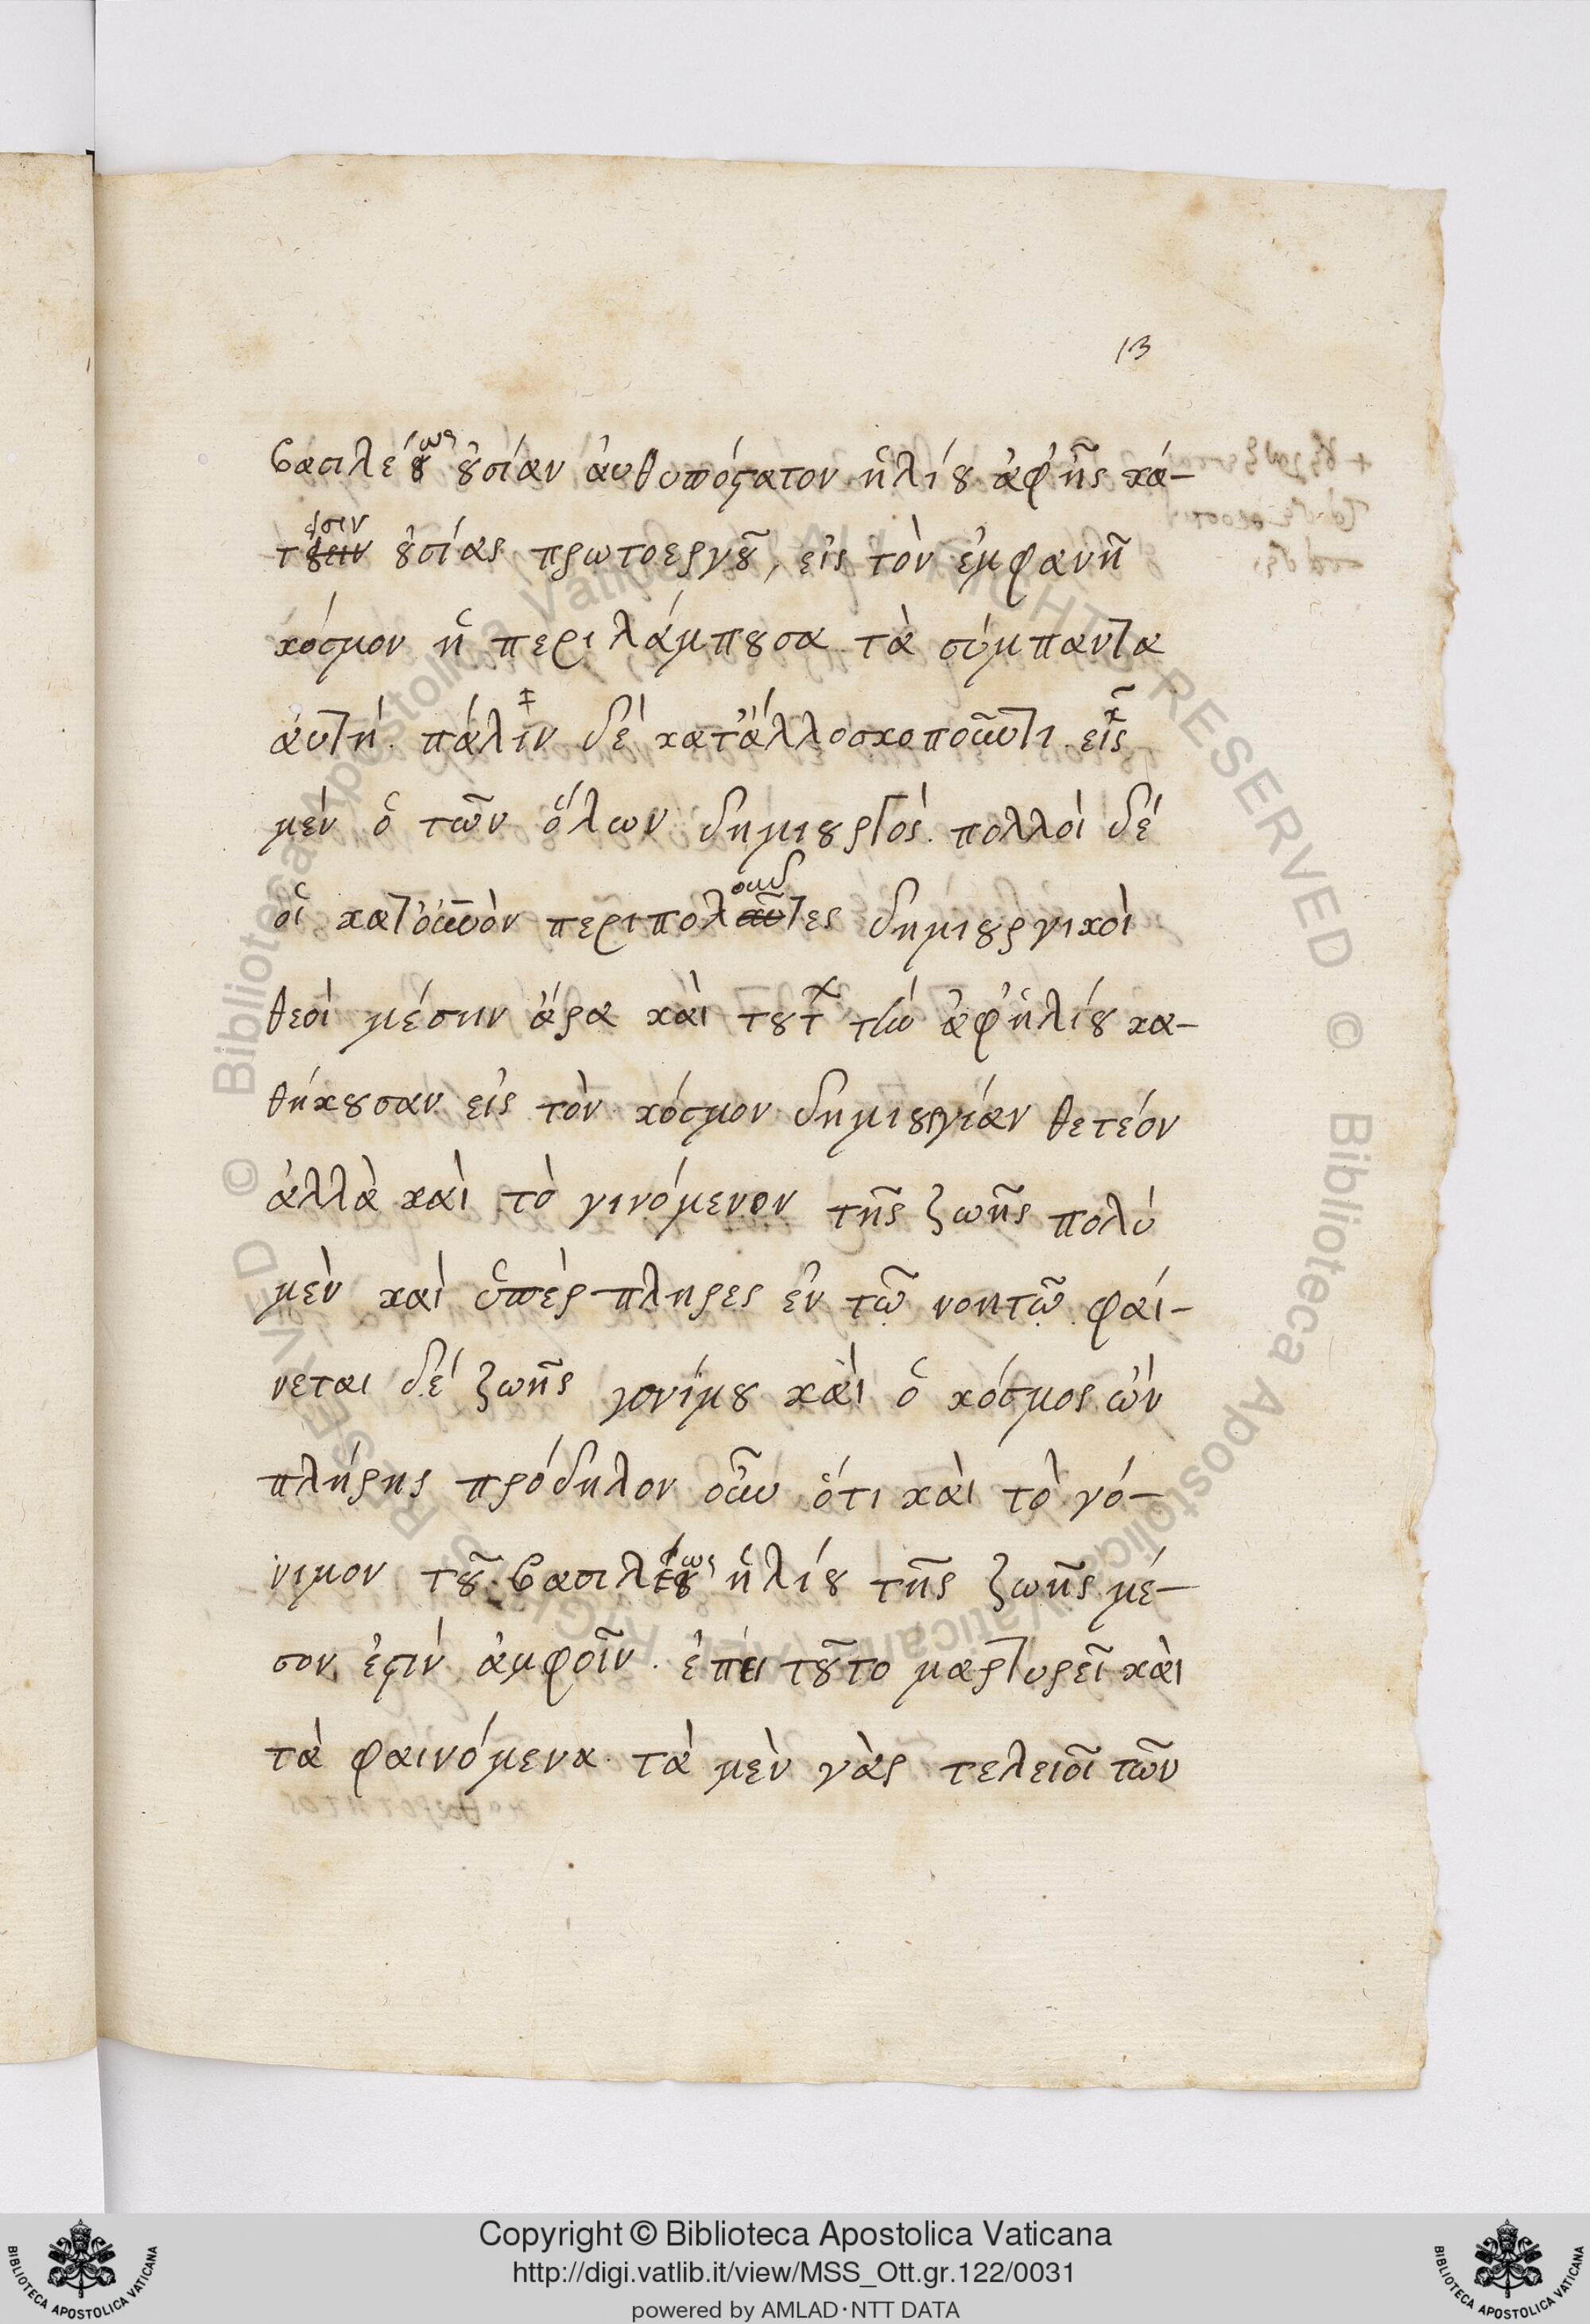 13
βασιλέου έως ουσίαν ἀυθυπόστατον ἡλίου ἀφ' ἧς κά-
τουειν εισιν ουσίας πρωτοεργοῦ, εἰς τὸν ἐμφανῆ
κόσμον ἡ περιλάμπουσα τὰ σύμπαντα
ἀυτή. πάλιν δέ κατ' ἄλλο σκοποῦντι. εἷς
μέν ὁ τῶν ὅλων δημιουργός. πολλοὶ δέ
οἱ κατ' οὐρανὸν περιπολοῦντες δημιουργικοὶ
θεοὶ μέσην ἄρα καὶ τουτ τὴν ἀφ' ἡλίου κα-
θήκουσαν εἰς τὸν κόσμον δημιουργίαν θετέον
ἀλλὰ καὶ τὸ γινόμενον τῆς ζωῆς πολύ
μὲν καὶ ὑπέρπληρες ἐν τῷ νοητῷ. φαί-
νεται δέ ζωῆς γονίμου καὶ ὁ κόσμος ὤν
πλήρης πρόδηλον οὖν ὅτι καὶ τὸ γό-
νιμον τοῦ βασιλέου έως ἡλίου τῆς ζωῆς μέ-
σον ἐστίν ἀμφοῖν. ἐπεὶ τοῦτο μαρτυρεῖ καὶ
τὰ φαινόμενα. τὰ μὲν γὰρ τελειοῖ τῶν
Copyright © Biblioteca Apostolica Vaticana
http://digi.vatlib.it/view/MSS_Ott.gr.122/0031
powered by AMLAD·NTT DATA
BIBLIOTECA APOSTOLICA VATICANA
BIBLIOTECA APOSTOLICA VATICANA